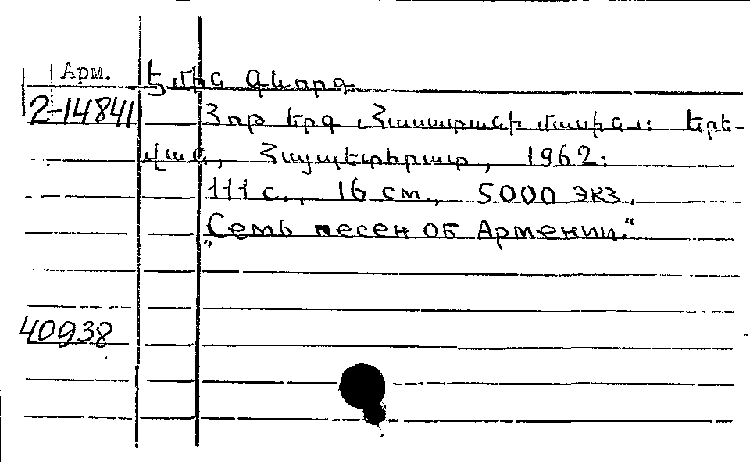 Арм. Էմին Գևորգ
2-14841 Յոթ երգ Հայաստանի մասին։ Երե-
վան, Հայպետհրատ, 1962։
111 с., 16 см., 5000 экз.
„Семь песен об Армении.“
40938